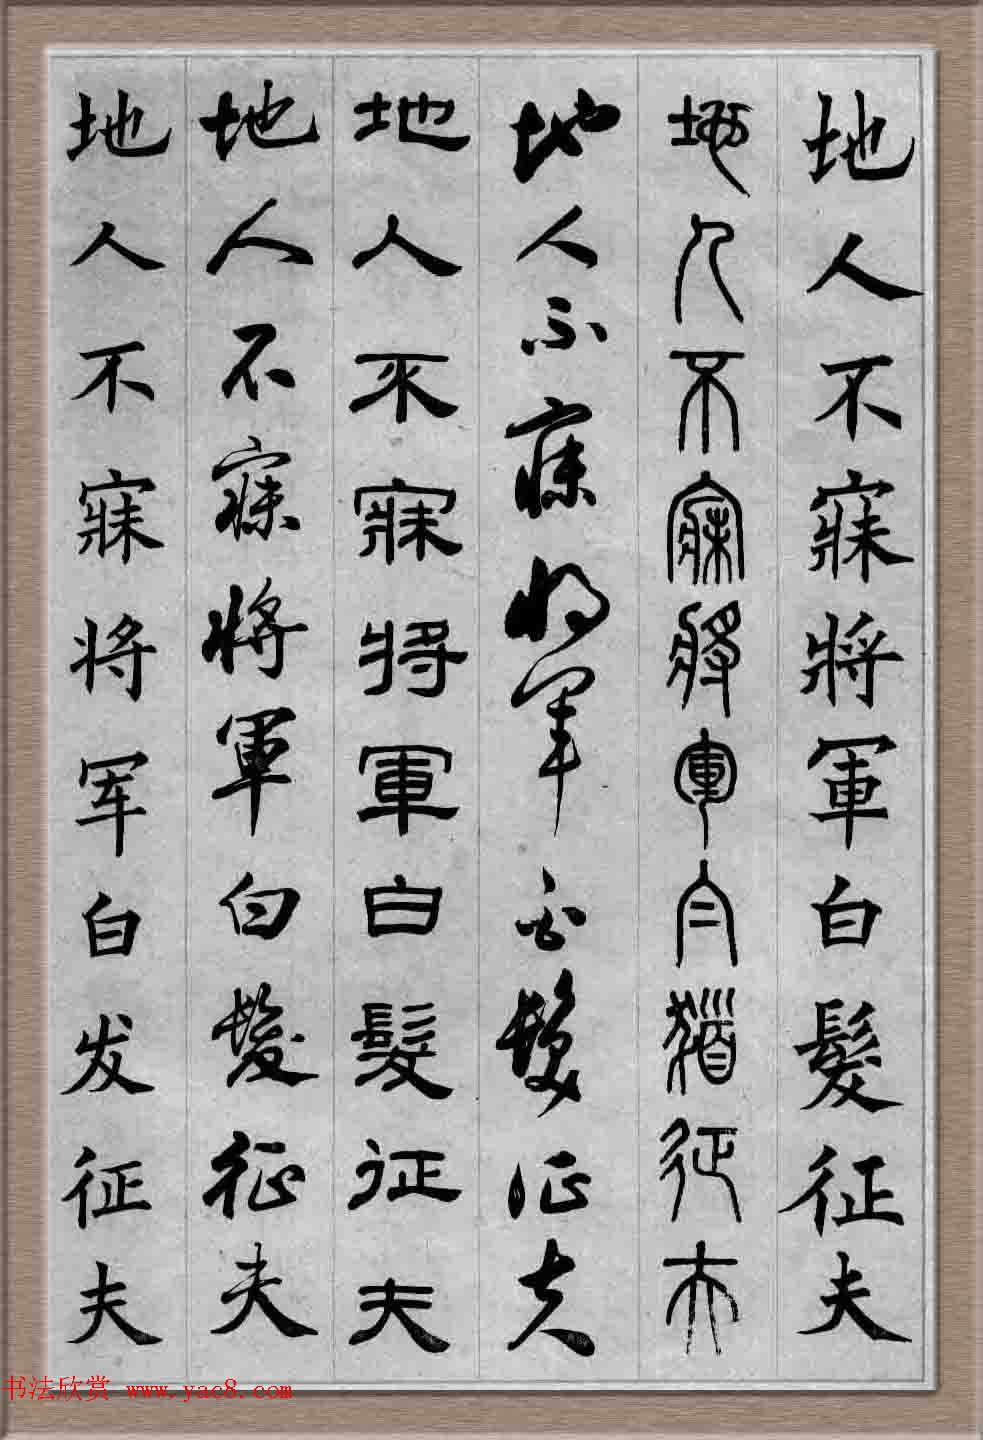 地人不寐將軍白髮征夫
地人不寐將軍白髮征夫
地人不寐将军白髮征夫
地人不寐将軍白髮征夫
地人不寐将軍白髮征夫
地人不寐将军白发征夫
书法欣赏 www.yac8.com